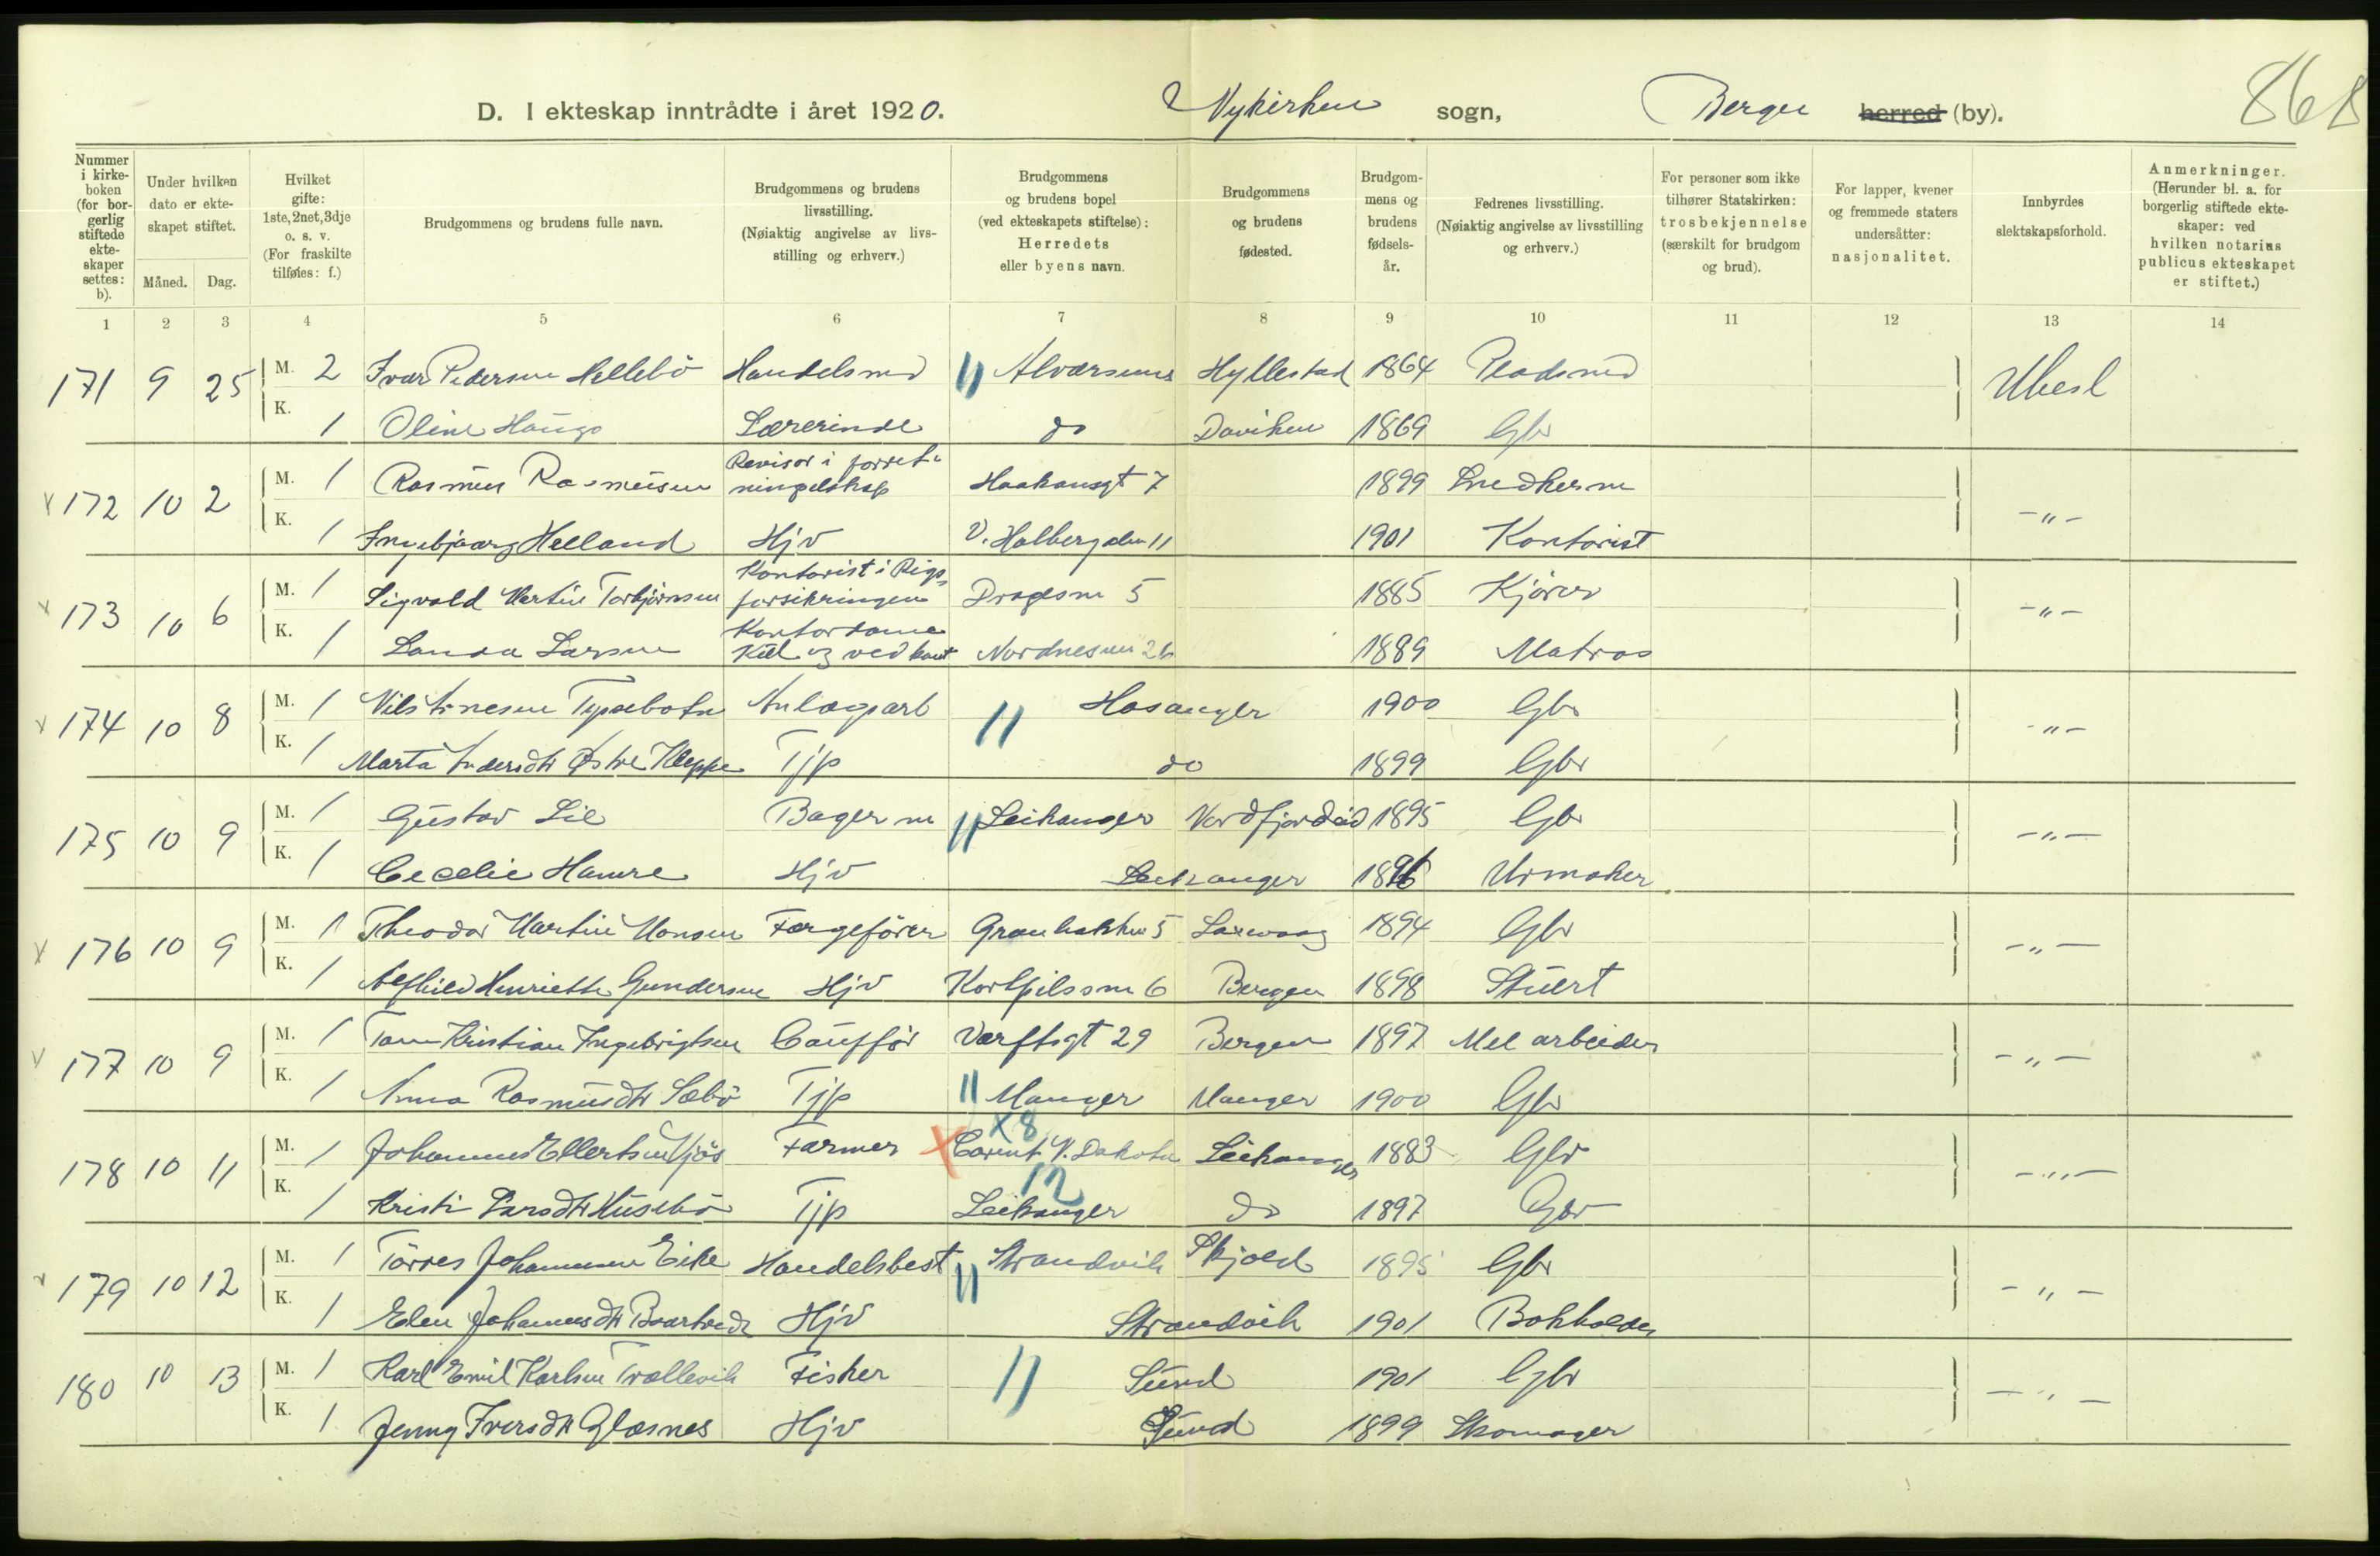 868
D. I ekteskap inntrådte i året 1920. Nykirken sogn, Bergen herred (by).
Nummer i kirkeboken (for borgerlig stiftede ekteskaper settes: b).
Under hvilken dato er ekteskapet stiftet.
Måned. Dag.
Hvilket gifte: 1ste, 2net, 3dje o. s. v. (For fraskilte tilføies: f.)
Brudgommens og brudens fulle navn.
Brudgommens og brudens livsstilling. (Nøiaktig angivelse av livsstilling og erhverv.)
Brudgommens og brudens bopel (ved ekteskapets stiftelse): Herredets eller byens navn.
Brudgommens og brudens fødested.
Brudgommens og brudens fødselsår.
Fedrenes livsstilling. (Nøiaktig angivelse av livsstilling og erhverv.)
For personer som ikke tilhører Statskirken: trosbekjennelse (særskilt for brudgom og brud).
For lapper, kvener og fremmede staters undersåtter: nasjonalitet.
Innbyrdes slektskapsforhold.
Anmerkninger. (Herunder bl. a. for borgerlig stiftede ekteskaper: ved hvilken notarius publicus ekteskapet er stiftet.)
1 2 3 4 5 6 7 8 9 10 11 12 13 14
171 9 25 M. 2 Ivar Pedersen Hellebö Handelsmd Alværsund Hyllestad 1864 Pladsmd Ubesl
K. 1 Oline Haugs Lærerinde do Daviken 1869 Gbr
172 10 2 M. 1 Rasmus Rasmussen Revisor i forretningselskap Haakonsgt 7 1899 Snedkerm -"-
K. 1 Ingebjørg Helland Hjv V. Holbergalm 11 1901 Kontorist
173 10 6 M. 1 Sigvald Martin Torbjörnsen Kontorist i Rigsforsikringen Dragesm 5 1885 Kjörer -"-
K. 1 Larsen Kontordame Kul og ved Nordnesvn 26 1889 Matros
174 10 8 M. 1 Nils Arnesen Tyssebotn Anlægsarb Hosanger 1900 Gbr -"-
K. 1 Marta Andersdtr Østre Kleppe Tjp do 1899 Gbr
175 10 9 M. 1 Gustav Lie Bagerm Leikanger Nordfjordeid 1895 Gbr -"-
K. 1 Cecelie Hamre Hjv Leikanger 1896 Urmaker
176 10 9 M. 1 Theodor Martin Monsen Færgeförer Granbakken 5 Laxevaag 1894 Gbr -"-
K. 1 Alfhild Henriette Gundersen Hjv 6 Bergen 1898 Stuert
177 10 9 M. 1 Tom Kristian Ingebrigtsen Chauffør Værftsgt 29 Bergen 1897 Mek arbeider -"-
K. 1 Anna Rasmusdtr Sæbö Tjp Manger Manger 1900 Gbr
x 8
178 10 11 M. 1 Johannes Ellertsen Njös Farmer N. Dakota Leikanger 1883 Gbr -"-
12
K. 1 Kristi Larsdtr Husebö Tjp Leikanger do 1897 Gbr
179 10 12 M. 1 Torres Johannesen Eike Handelsbest Strandvik Skjold 1895 Gbr -"-
K. 1 Elen Johannesdtr Hjv Strandvik 1901 Bokholder
180 10 13 M. 1 Karl Emil Karlsen Trællevik Fisker Sund 1901 Gbr -"-
K. 1 Jenny Iversdtr Glæsnes Hjv Sund 1899 Skomager